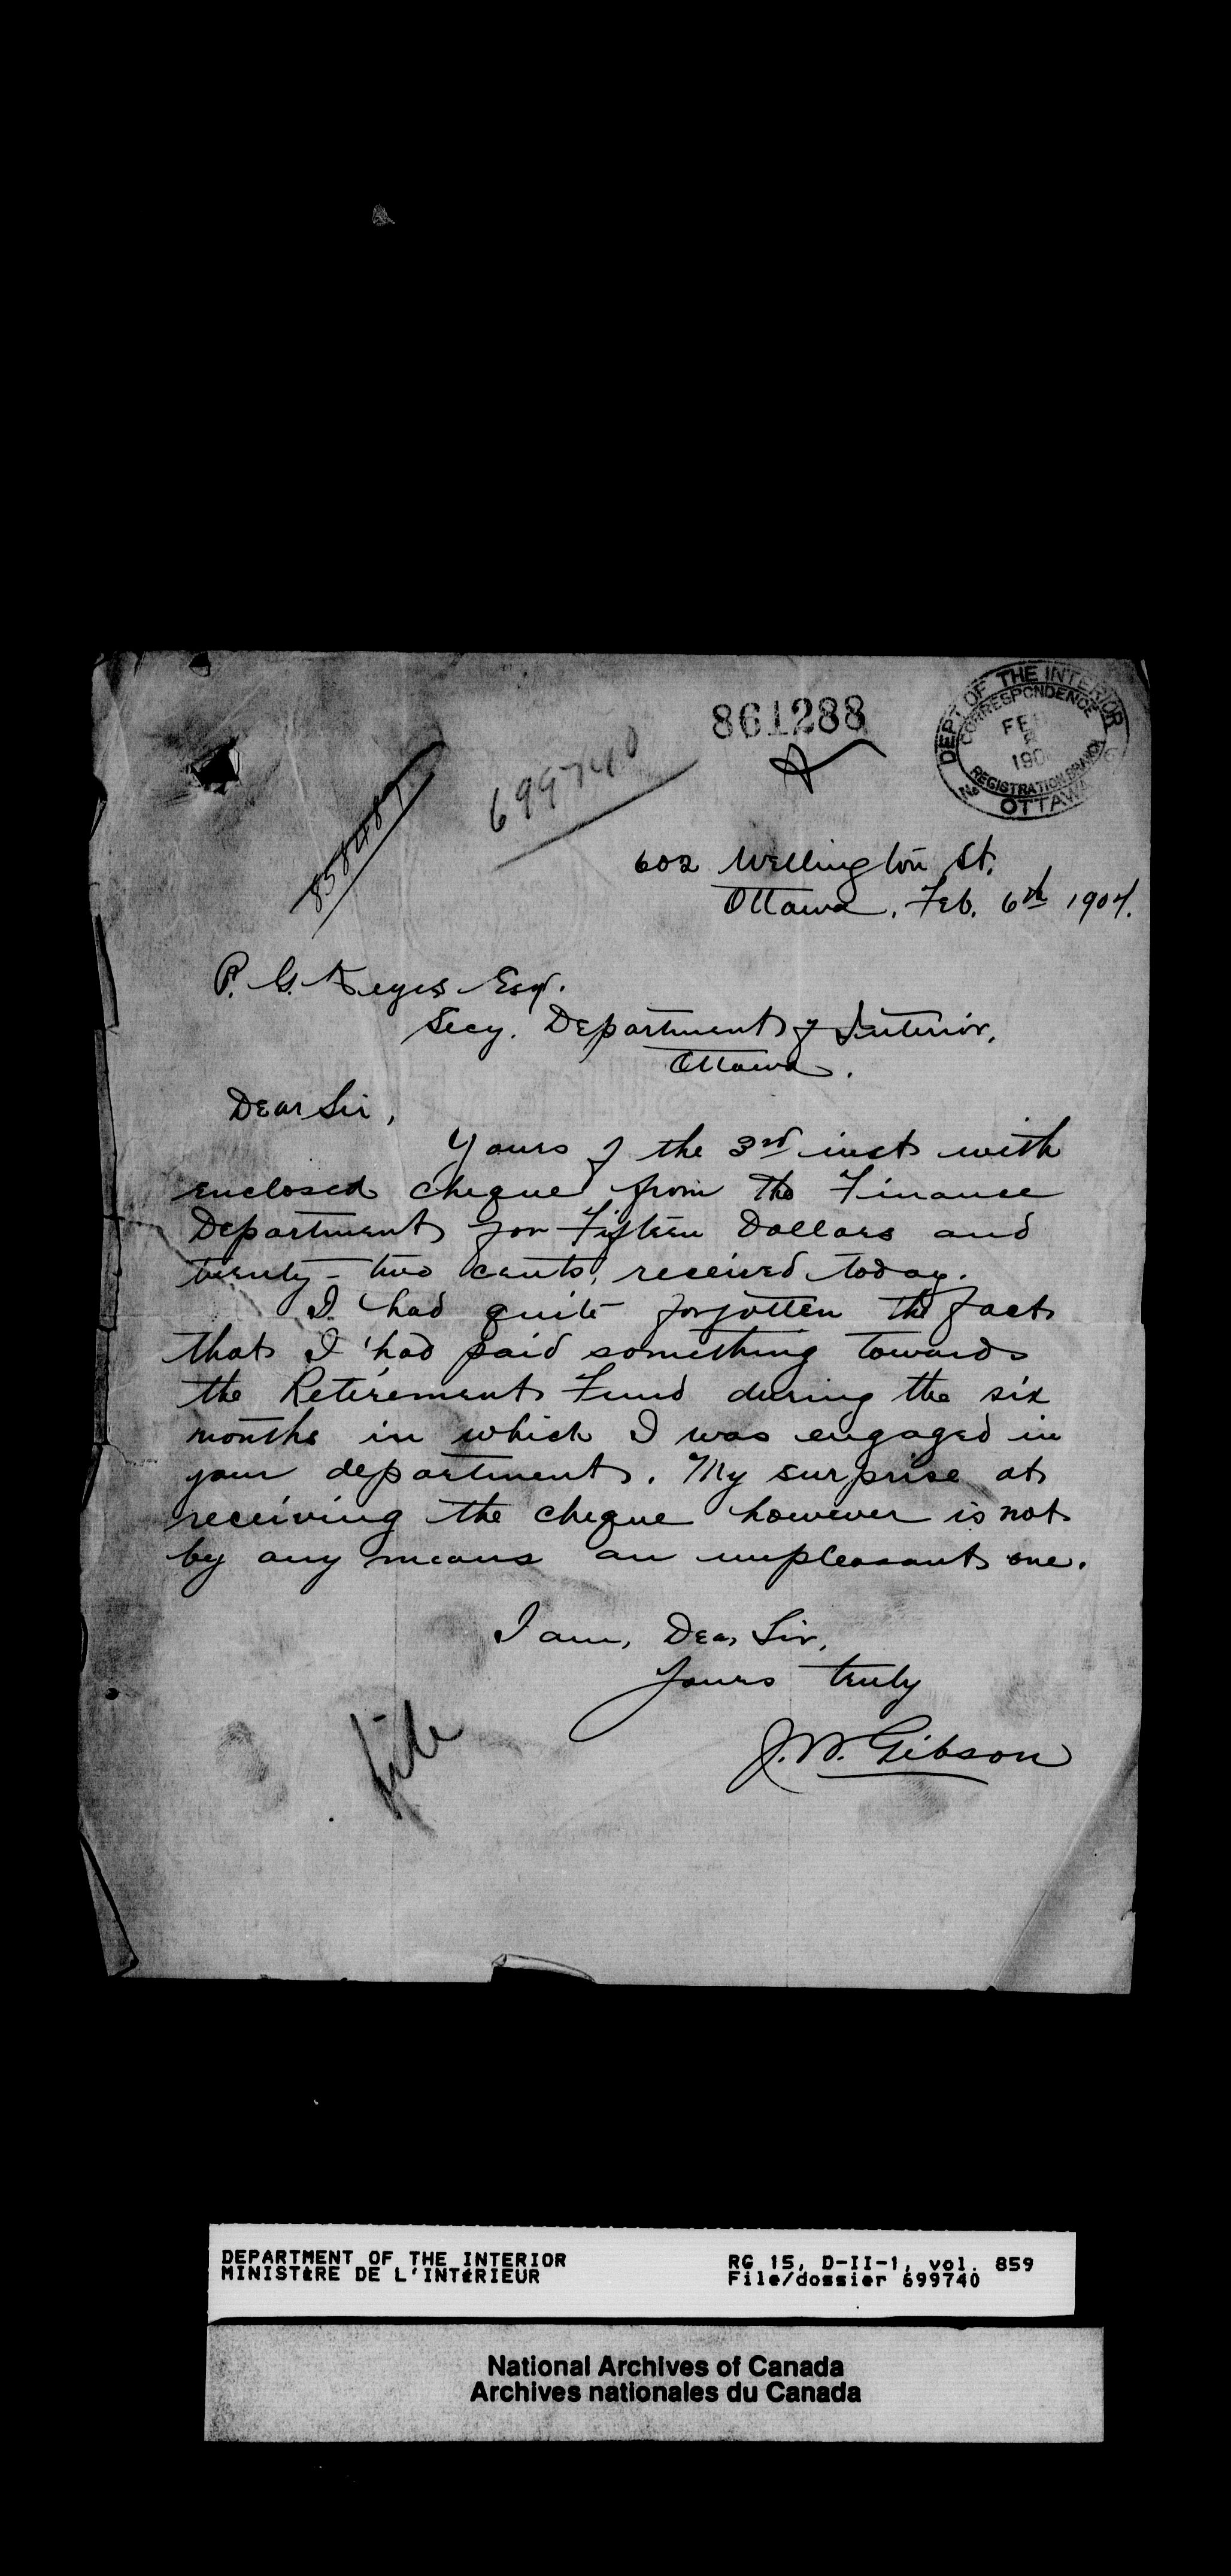 861288
DEPT. OF THE INTERIOR
CORRESPONDENCE
FE
8
190
REGISTRATION BRANCH
OTTAWA
699740
858487
602 Wellington St.
Ottawa, Feb. 6th 1904.
P. G. Keyes Esq.
Secy. Department of Interior,
Ottawa.
Dear Sir,
Yours of the 3rd inst with
enclosed cheque from the Finance
Department for Fifteen Dollars and
twenty-two cents, received today.
I had quite forgotten the fact
that I had paid something towards
the Retirement Fund during the six
months in which I was engaged in
your department. My surprise at
receiving the cheque however is not
by any means an unpleasant one.
I am, Dear Sir,
Yours truly
J. W. Gibson
file
DEPARTMENT OF THE INTERIOR
MINISTÈRE DE L'INTÉRIEUR
RG 15, D-II-1, vol. 859
File/dossier 699740
National Archives of Canada
Archives nationales du Canada